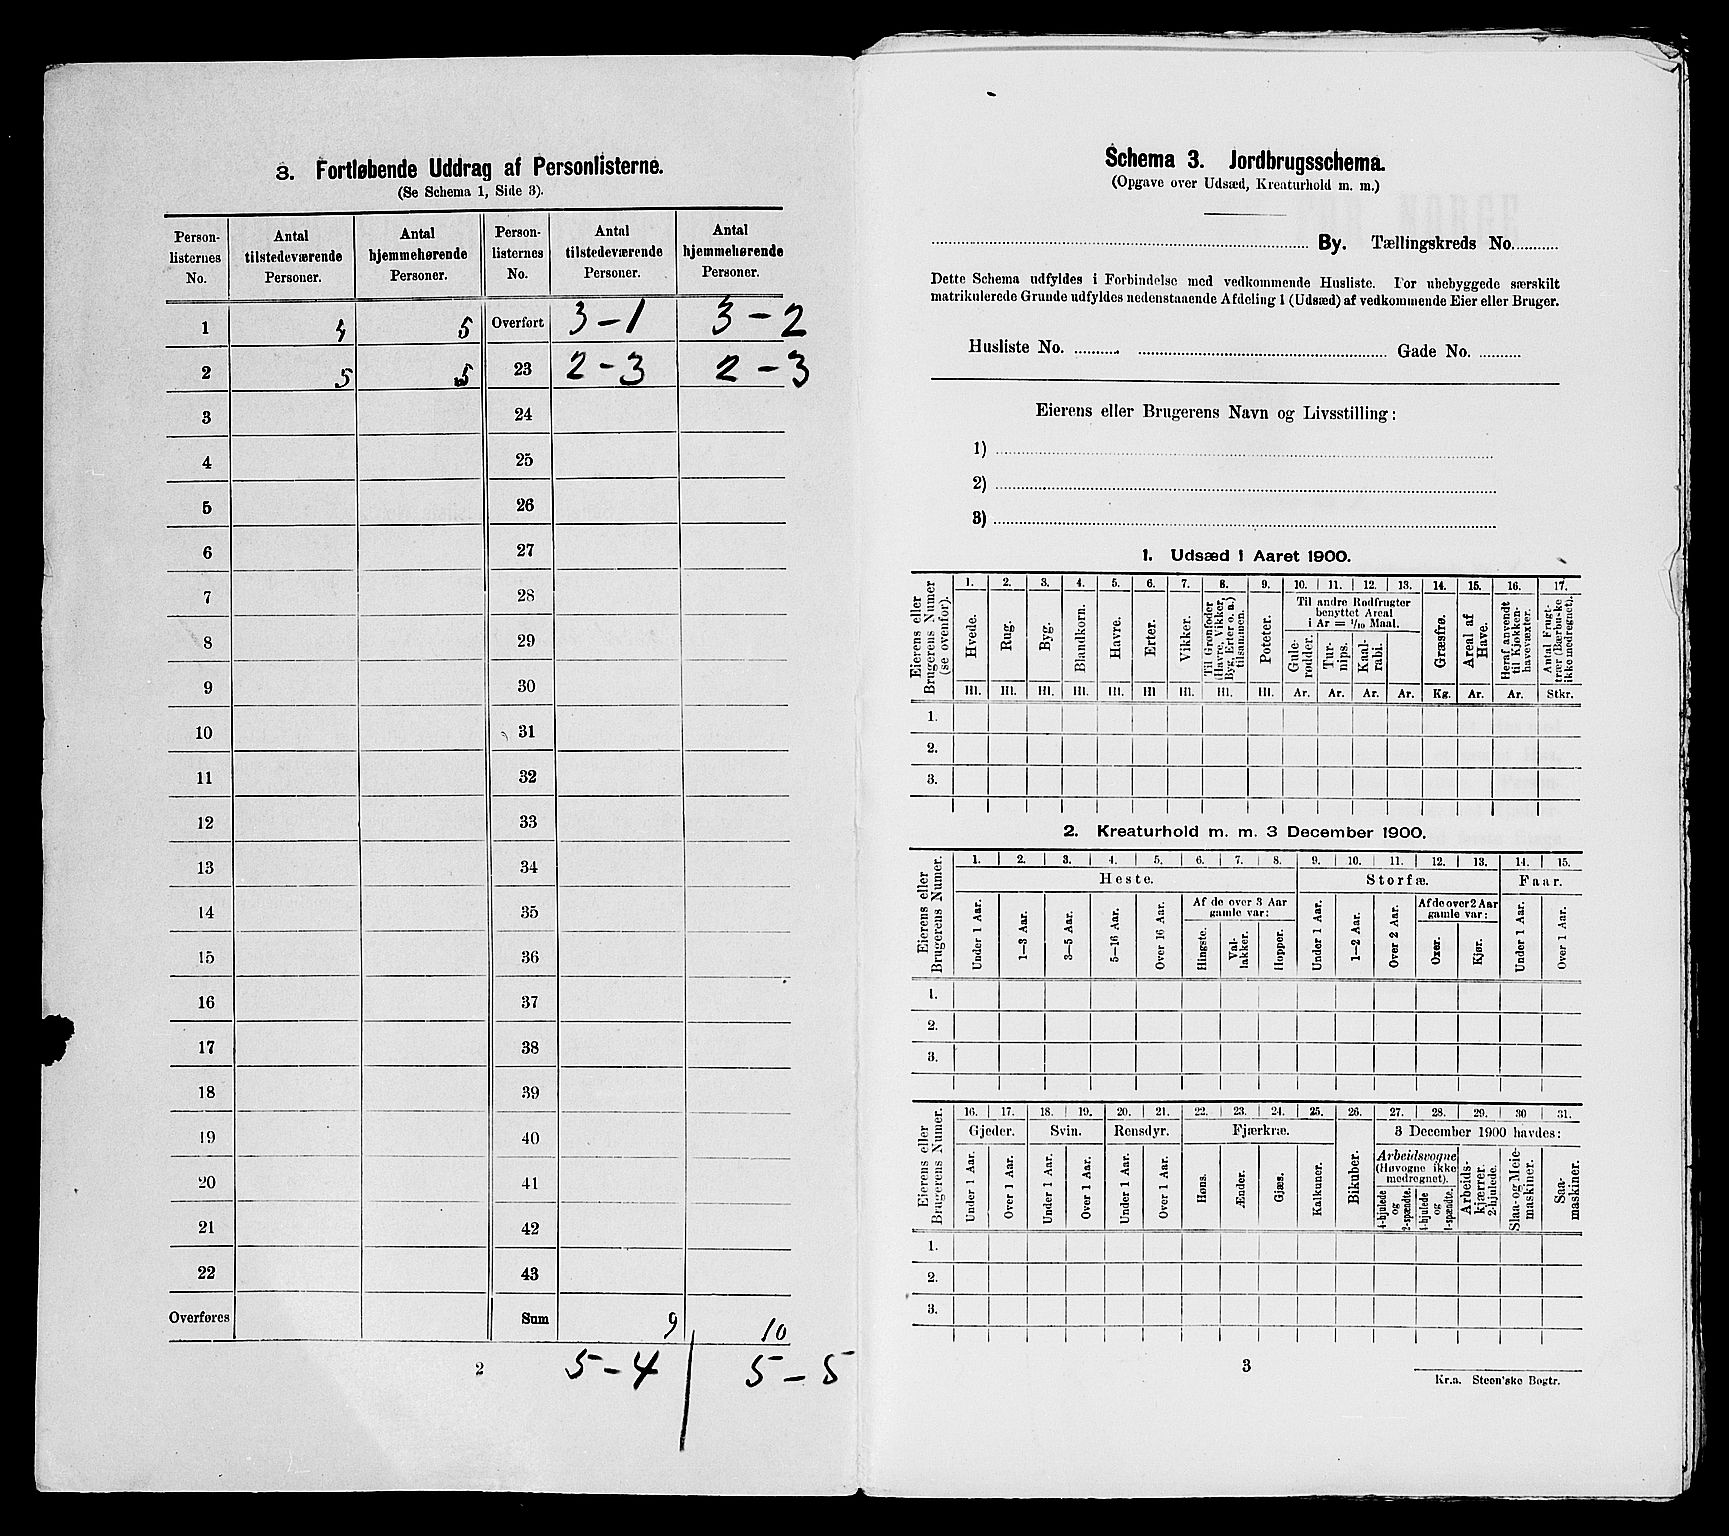 3. Fortløbende Uddrag af Personlisterne.
(Se Schema 1, Side 3).
Person-listernes No. Antal tilstedeværende Personer. Antal hjemmehørende Personer. Person-listernes No. Antal tilstedeværende Personer. Antal hjemmehørende Personer.
1 4 5 Overført 3-1 3-2
2 5 5 23 2-3 2-3
3 24
4 25
5 26
6 27
7 28
8 29
9 30
10 31
11 32
12 33
13 34
14 35
15 36
16 37
17 38
18 39
19 40
20 41
21 42
22 43
Overføres Sum 9 10
2 5-4 5-5
Schema 3. Jordbrugsschema.
(Opgave over Udsæd, Kreaturhold m. m.)
By. Tællingskreds No.
Dette Schema udfyldes i Forbindelse med vedkommende Husliste. For ubebyggede særskilt
matrikulerede Grunde udfyldes nedenstaaende Afdeling 1 (Udsæd) af vedkommende Eier eller Bruger.
Husliste No. Gade No.
Eierens eller Brugerens Navn og Livsstilling:
1)
2)
3)
1. Udsæd i Aaret 1900.
Eierens eller Brugerens Numer (se ovenfor).
1. 2. 3. 4. 5. 6. 7. 8. 9. 10. 11. 12. 13. 14. 15. 16. 17.
Hvede. Rug. Byg. Blandkorn. Havre. Erter. Vikker. Til Grønfoder (Havre, Vikker, Byg, Erter o. a.) tilsammen. Poteter.
Til andre Rodfrugter
benyttet Areal
i Ar = 1/10 Maal.
Gule-rødder. Tur-nips. Kaal-rabi. Græsfrø. Areal af Have. Heraf anvendt til Kjøkken-havevæxter. Antal Frugt-trær (Bærbuske ikke medregnet).
Hl. Hl. Hl. Hl. Hl. Hl Hl. Hl. Hl. Ar. Ar. Ar. Ar. Kg. Ar. Ar. Stkr.
1.
2.
3.
2. Kreaturhold m. m. 3 December 1900.
Eierens eller Brugerens Numer.
1. 2. 3. 4. 5. 6. 7. 8. 9. 10. 11. 12. 13. 14. 15.
Heste. Storfæ. Faar.
Af de over 3 Aar gamle var: Af de over 2 Aar gamle var:
Under 1 Aar. 1—3 Aar. 3—5 Aar. 5—16 Aar. Over 16 Aar. Hingste. Val-lakker. Hopper. Under 1 Aar. 1—2 Aar. Over 2 Aar. Oxer. Kjør. Under 1 Aar. Over 1 Aar.
1.
2.
3.
Eierens eller Brugerens Numer.
16. 17. 18. 19. 20. 21. 22. 23. 24. 25. 26. 27. 28. 29. 30 31.
Gjeder. Svin. Rensdyr. Fjærkræ. Bikuber. 3 December 1900 havdes:
Arbeidsvogne (Høvogne ikke medregnet).
Under 1 Aar. Over 1 Aar. Under 1 Aar. Over 1 Aar. Under 1 Aar. Over 1 Aar. Høns. Ænder. Gjæs. Kalkuner. 4-hjulede og 2-spændte. 4-hjulede og 1-spændte. Arbeids-kjærrer, 2-hjulede. Slaa- og Meie-maskiner. Saa-maskiner.
1.
2.
3.
3
Kr.a. Steen'ske Bogtr.